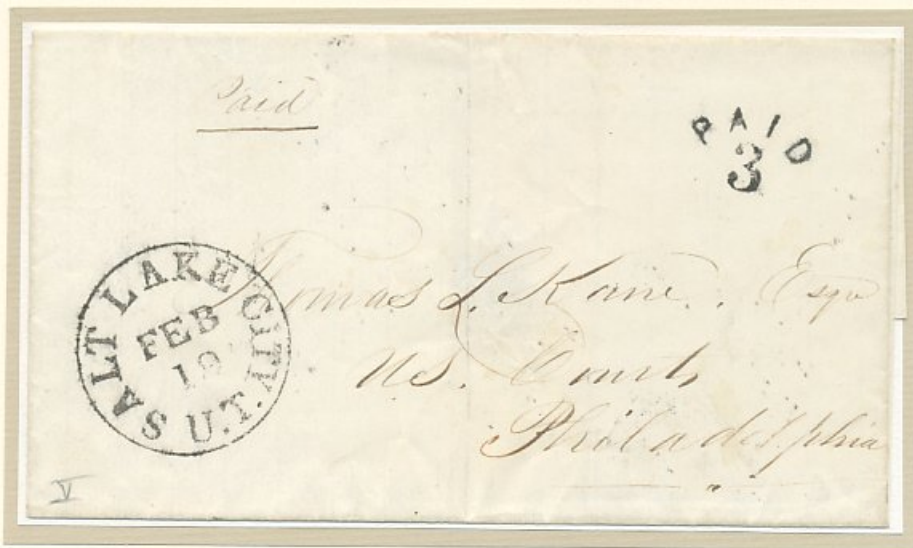 Paid
PAID
3
SALT LAKE CITY
FEB
19
U.T.
Thomas L. Kane. Esqr
U.S. Courts
Philadelphia
V